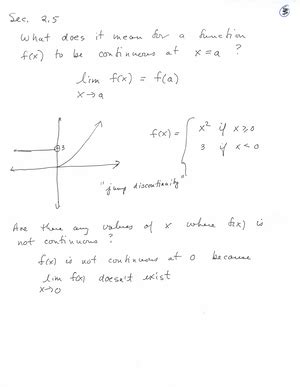 Sec. 2.5
③
What does it mean for a function
f(x) to be continuous at x = a ?
lim f(x) = f(a)
x→a
3
f(x) = { x² if x ≥ 0
3 if x < 0
"jump discontinuity"
Are there any values of x where f(x) is
not continuous ?
f(x) is not continuous at 0 because
lim f(x) doesn't exist
x→0